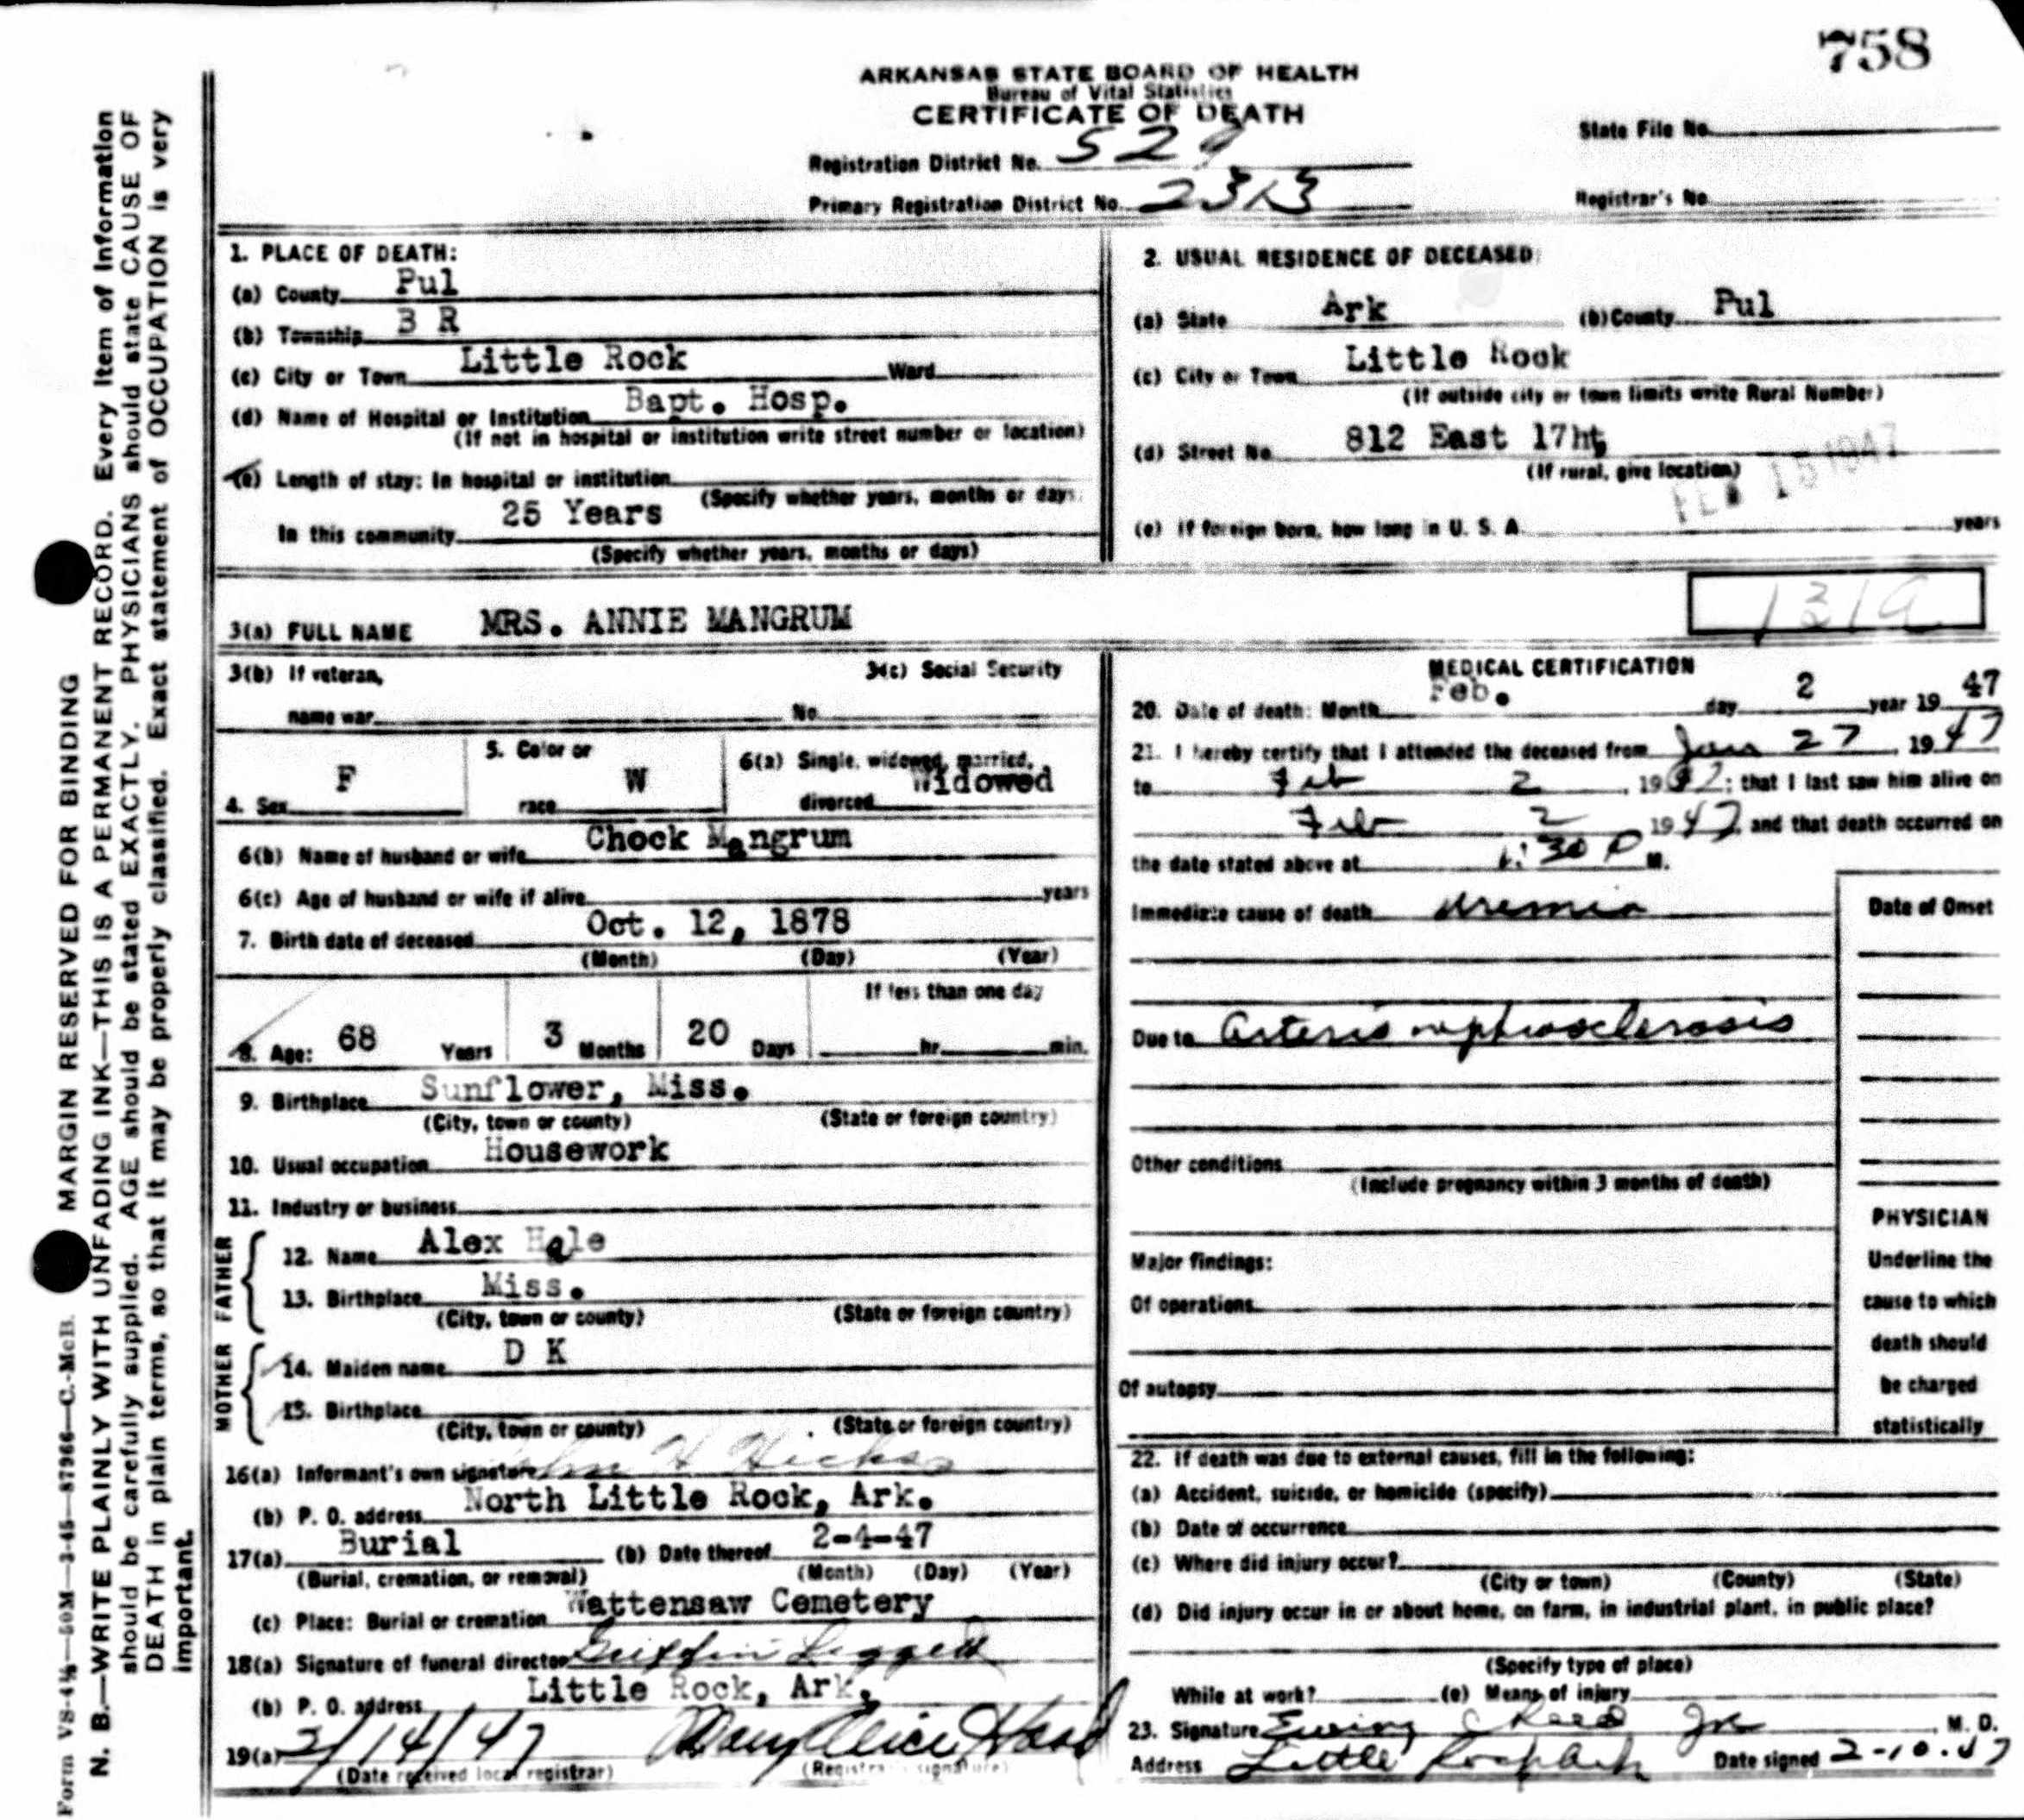 758
ARKANSAS STATE BOARD OF HEALTH
Bureau of Vital Statistics
CERTIFICATE OF DEATH
State File No.
Registration District No. 529
Primary Registration District No. 2313
Registrar's No.
1. PLACE OF DEATH:
(a) County Pul
(b) Township B R
(c) City or Town Little Rock Ward
(d) Name of Hospital or Institution Bapt. Hosp.
(If not in hospital or institution write street number or location)
(e) Length of stay: In hospital or institution
(Specify whether years, months or days)
In this community 25 Years
(Specify whether years, months or days)
2. USUAL RESIDENCE OF DECEASED:
(a) State Ark (b) County Pul
(c) City or Town Little Rock
(If outside city or town limits write Rural Number)
(d) Street No. 812 East 17ht
(If rural, give location)
FEB 15 1947
(e) If foreign born, how long in U. S. A. years
3(a) FULL NAME MRS. ANNIE MANGRUM
131a
3(b) If veteran,
name war
3(c) Social Security
No.
4. Sex F
5. Color or
race W
6(a) Single, widowed, married,
divorced Widowed
6(b) Name of husband or wife Chock Mangrum
6(c) Age of husband or wife if alive years
7. Birth date of deceased Oct. 12, 1878
(Month) (Day) (Year)
If less than one day
8. Age: 68 Years 3 Months 20 Days hr. min.
9. Birthplace Sunflower, Miss.
(City, town or county) (State or foreign country)
10. Usual occupation Housework
11. Industry or business
FATHER
12. Name Alex Hale
13. Birthplace Miss.
(City, town or county) (State or foreign country)
MOTHER
14. Maiden name D K
15. Birthplace
(City, town or county) (State or foreign country)
16(a) Informant's own signature H Hicks
(b) P. O. address North Little Rock, Ark.
17(a) Burial (b) Date thereof 2-4-47
(Burial, cremation, or removal) (Month) (Day) (Year)
(c) Place: Burial or cremation Wattensaw Cemetery
18(a) Signature of funeral director Griffin Leggett
(b) P. O. address Little Rock, Ark.
19(a) 2/14/47 Mary Alice Hood
(Date received local registrar) (Registrar's signature)
MEDICAL CERTIFICATION
20. Date of death: Month Feb. day 2 year 19 47
21. I hereby certify that I attended the deceased from Jan 27, 19 47
to Feb 2, 19 47; that I last saw him alive on
Feb 2 19 47, and that death occurred on
the date stated above at 1:30 P M.
Immediate cause of death uremia
Date of Onset
Due to Arterio nephrosclerosis
Other conditions
(Include pregnancy within 3 months of death)
Major findings:
Of operations
Of autopsy
PHYSICIAN
Underline the
cause to which
death should
be charged
statistically
22. If death was due to external causes, fill in the following:
(a) Accident, suicide, or homicide (specify)
(b) Date of occurrence
(c) Where did injury occur?
(City or town) (County) (State)
(d) Did injury occur in or about home, on farm, in industrial plant, in public place?
(Specify type of place)
While at work? (e) Means of injury
23. Signature Ewing Reed Jr, M. D.
Address Little Rock Ark Date signed 2-10-47
MARGIN RESERVED FOR BINDING
N. B.—WRITE PLAINLY WITH UNFADING INK—THIS IS A PERMANENT RECORD. Every Item of Information
should be carefully supplied. AGE should be stated EXACTLY. PHYSICIANS should state CAUSE OF
DEATH in plain terms, so that it may be properly classified. Exact statement of OCCUPATION is very
important.
Form VS-4½—50M—3-45—87966—C.-McB.